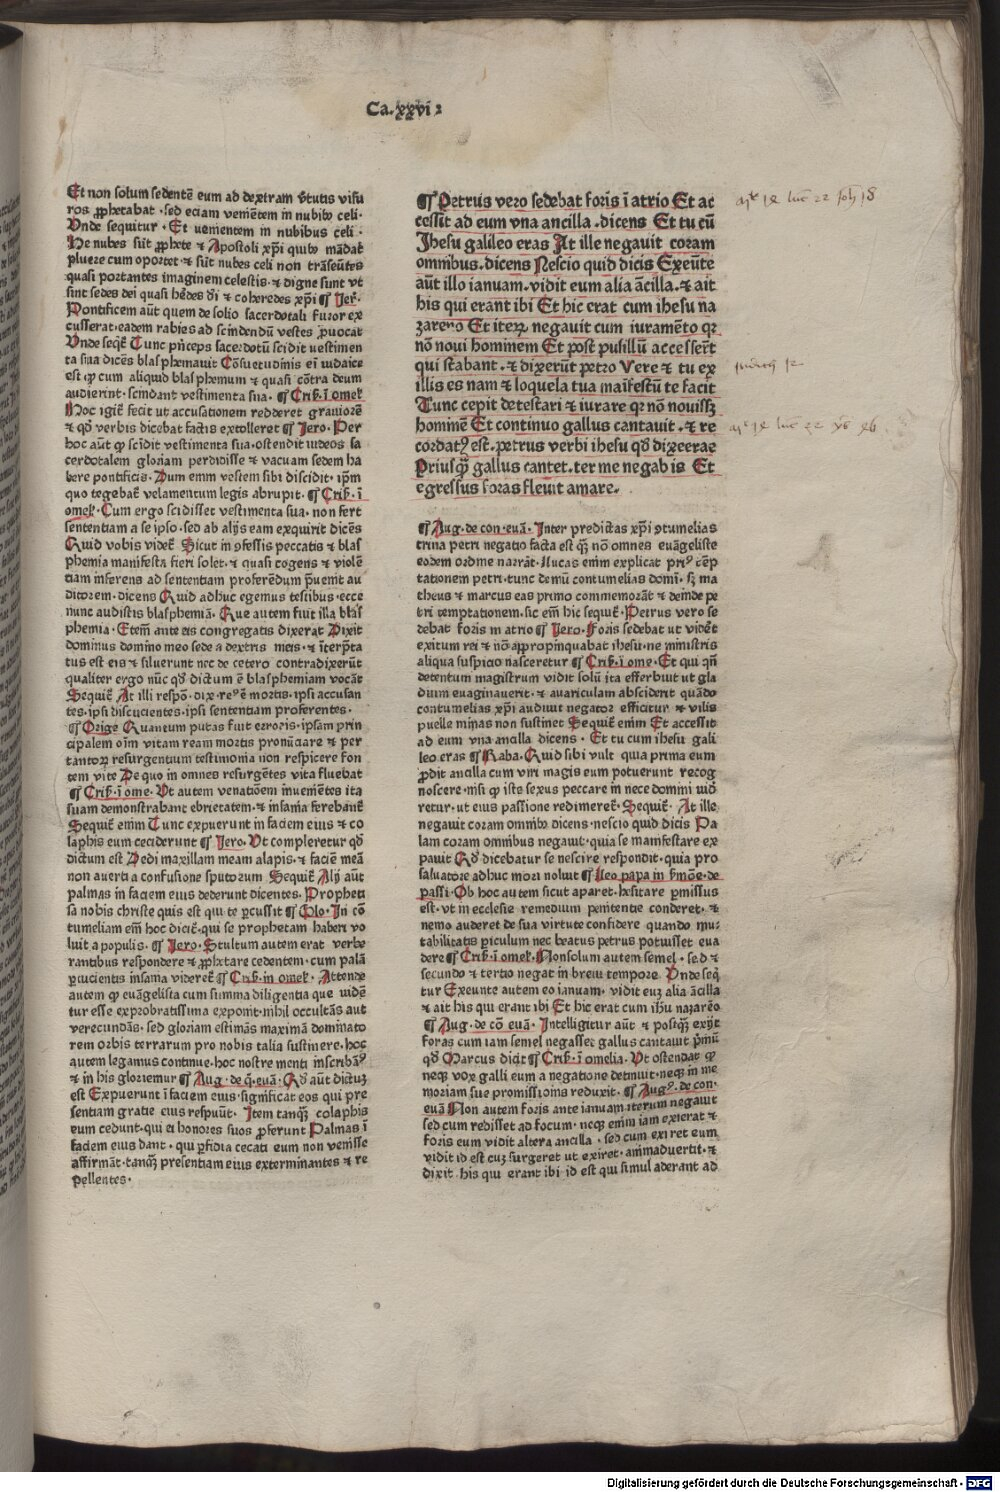 Ca.xxvi
Et non solum sedentē eum ad dextram v̄tutis visu
ros ꝓphetabat · sed eciam veniētem in nubibꝰ celi·
Vnde sequitur · Et venientem in nubibus celi·
He nubes sūt ꝓphete ⁊ Apostoli xp̄i quibꝰ mādat
pluere cum oportet·⁊ sūt nubes celi non trāseūtes
quasi portantes imaginem celestis·⁊ digne sunt vt
sint sedes dei quasi hēdes dī ⁊ coheredes xp̄i ¶ Jer̄·
Pontificem aūt quem de solio sacerdotali furor ex
cusserat·eadem rabies ad scindendū vestes ꝓuocat
Vnde seqť Tunc pn̄ceps sacerdotū scidit vestimen
ta sua dicēs blasphemauit Cōsuetudinis eī iudaice
est ꝙ cum aliquid blasphemum ⁊ quasi cōtra deum
audierint·scindant vestimenta sua· ¶ Cris̄·ī omel
Hoc igiť fecit ut accusationem redderet grauiorē
⁊ qd̄ verbis dicebat factis extolleret ¶ Jero·Per
hoc aūt ꝙ scidit vestimenta sua·ostendit iudeos sa
cerdotalem gloriam perdidisse ⁊ vacuam sedem ha
bere pontificis· Dum enim vestem sibi discidit·ip̄m
quo tegebat velamentum legis abrupit· ¶ Cris̄· ī
omel· Cum ergo scidisset vestimenta sua· non fert
sententiam a se ipso·sed ab alijs eam exquirit dicēs
Quid vobis videť Sicut in ꝯfessis peccatis ⁊ blas
phemia manifesta fieri solet·⁊ quasi cogens ⁊ violē
tiam inferens ad sententiam proferēdum p̄uenit au
ditorem· dicens Quid adhuc egemus testibus·ecce
nunc audistis blasphemiā· Que autem fuit illa blas
phemia·Eteni ante eis congregatis dixerat Dixit
dominus domino meo sede a dextris meis·⁊ īterp̄ta
tus est eis ⁊ siluerunt nec de cetero contradixerūt
qualiter ergo nūc qd̄ dictum ē blasphemiam vocāt
Sequiť At illi respō·dix·reꝰ ē mortis·ipsi accusan
tes·ipsi discucientes·ipsi sententiam proferentes·
¶ Orige Quantum putas fuit erroris·ipsam prin
cipalem oīm vitam ream mortis pronūciare ⁊ per
tantoꝝ resurgentium testimonia non respicere fon
tem vite De quo in omnes resurgētes vita fluebat
¶ Cris̄·ī ome·Vt autem venatiōem inuenietes ita
suam demonstrabant ebrietatem·⁊ insania ferebanť
Sequiť enim Tunc expuerunt in faciem eius ⁊ co
laphis eum ceciderunt ¶ Jero·Vt compleretur qd̄
dictum est Dedi maxillam meam alapis·⁊ faciē meā
non auerti a confusione sputorum Sequiť Alij aūt
palmas in faciem eius dederunt dicentes·Propheti
sa nobis christe quis est qui te percussit ¶ Glo·In cō
tumeliam em̄ hoc dicūt·qui se prophetam haberi vo
luit a populis· ¶ Jero·Stultum autem erat verbe
rantibus respondere ⁊ ꝓphetare cedentem·cum palā
percutientis insania videret ¶ Cris̄·in omel·Attende
autem ꝙ euāgelista cum summa diligentia que vidē
tur esse exprobratissima exponit·nihil occultās aut
verecundās·sed gloriam estimās maximā dominato
rem orbis terrarum pro nobis talia sustinere·hoc
autem legamus continue·hoc nostre menti inscribāꝰ
⁊ in his gloriemur ¶ Aug·de q̄·euā·Qd̄ aūt dictuꝫ
est Expuerunt ī faciem eius·significat eos qui pre
sentiam gratie eius respuūt· Item tanqꝫ colaphis
eum cedunt·qui ei honores suos ꝓferunt Palmas ī
faciem eius dant· qui ꝑfidia cecati eum non venisse
affirmāt·tanqꝫ presentiam eius exterminantes ⁊ re
pellentes·
¶ Petrus vero sedebat foris ī atrio Et ac
cessit ad eum vna ancilla ·dicens Et tu cū
Jhesu galileo eras At ille negauit coram
omnibus·dicens Nescio quid dicis Exeūte
aūt illo ianuam·vidit eum alia ācilla·⁊ ait
his qui erant ibi Et hic erat cum ihesu na
zareno Et iteꝝ negauit cum iuramēto qꝛ
nō noui hominem Et post pusillū accesserūt
qui stabant·⁊ dixerūt petro Vere ⁊ tu ex
illis es nam ⁊ loquela tua maīfestū te facit
Tunc cepit detestari ⁊ iurare qꝛ non nouisꝫ
hominē Et continuo gallus cantauit·⁊ re
cordatꝰ est·petrus verbi ihesu qd̄ dixerae
Priusqꝫ gallus cantet·ter me negabis Et
egressus foras fleuit amare·
¶ Aug·de con·euā·Inter predictas xp̄i ꝯtumelias
trina petri negatio facta est qꝫ nō omnes euāgeliste
eodem ordine narrāt·Lucas enim explicat priꝰ tēp
tationem petri·tunc demū contumelias domī· sꝫ ma
theus ⁊ marcus eas primo commemorāt ⁊ deinde pe
tri temptationem·sic em̄ hic sequiť·Petrus vero se
debat foris in atrio ¶ Jero·Foris sedebat ut videret
exitum rei ⁊ nō appropinquabat ihesu·ne ministris
aliqua suspicio nasceretur ¶ Cris̄·ī ome·Et qui qn̄
detentum magistrum vidit solū ita efferbuit ut gla
dium euaginauerit·⁊ auriculam absciderit quādo
contumelias xp̄i audiuit negator efficitur ⁊ vilis
puelle minas non sustinet Sequiť enim Et accessit
ad eum vna ancilla dicens · Et tu cum ihesu gali
leo eras ¶ Raba·Quid sibi vult quia prima eum
ꝓdit ancilla cum viri magis eum potuerunt recog
noscere·nisi ꝙ iste sexus peccare in nece domini vid
retur·ut eius passione redimereť·Sequiť· At ille
negauit coram omnibꝰ dicens·nescio quid dicis Pa
lam coram omnibus negauit·quia se manifestare ex
pauit Qd̄ dicebatur se nescire respondit·quia pro
saluatore adhuc mori noluit ¶ Leo papa in s̄mōe·de
passi·Ob hoc autem sicut aparet·hesitare permissus
est·vt in ecclesie remedium penitentie conderet·⁊
nemo auderet de sua virtute confidere quando mu
tabilitatis periculum nec beatus petrus potuisset eua
dere ¶ Cris̄·ī omel·Nonsolum autem semel ·sed ⁊
secundo ⁊ tertio negat in breui tempore Vnde seq̄
tur Exeunte autem eo ianuam·vidit euꝫ alia ācilla
⁊ ait his qui erant ibi Et hic erat cum ihū nazarēo
¶ Aug·de cō euā·Intelligitur aūt ⁊ postqꝫ exijt
foras cum iam semel negasset gallus cantauit p̄mū
qd̄ Marcus dicit ¶ Cris̄·ī omelia·Vt ostendat ꝙ
neqꝫ vox galli eum a negatione detinuit·neqꝫ in me
moriam sue promissionis reduxit· ¶ Augꝰ·de con·
euā Non autem foris ante ianuam iterum negauit
sed cum redisset ad focum·neqꝫ enim iam exierat ⁊
foris eum vidit altera ancilla · sed cum exiret eum
vidit id est cuꝫ surgeret ut exiret·animaduertit·⁊
dixit·his qui erant ibi id est qui simul aderant ad
Digitalisierung gefördert durch die Deutsche Forschungsgemeinschaft - DFG